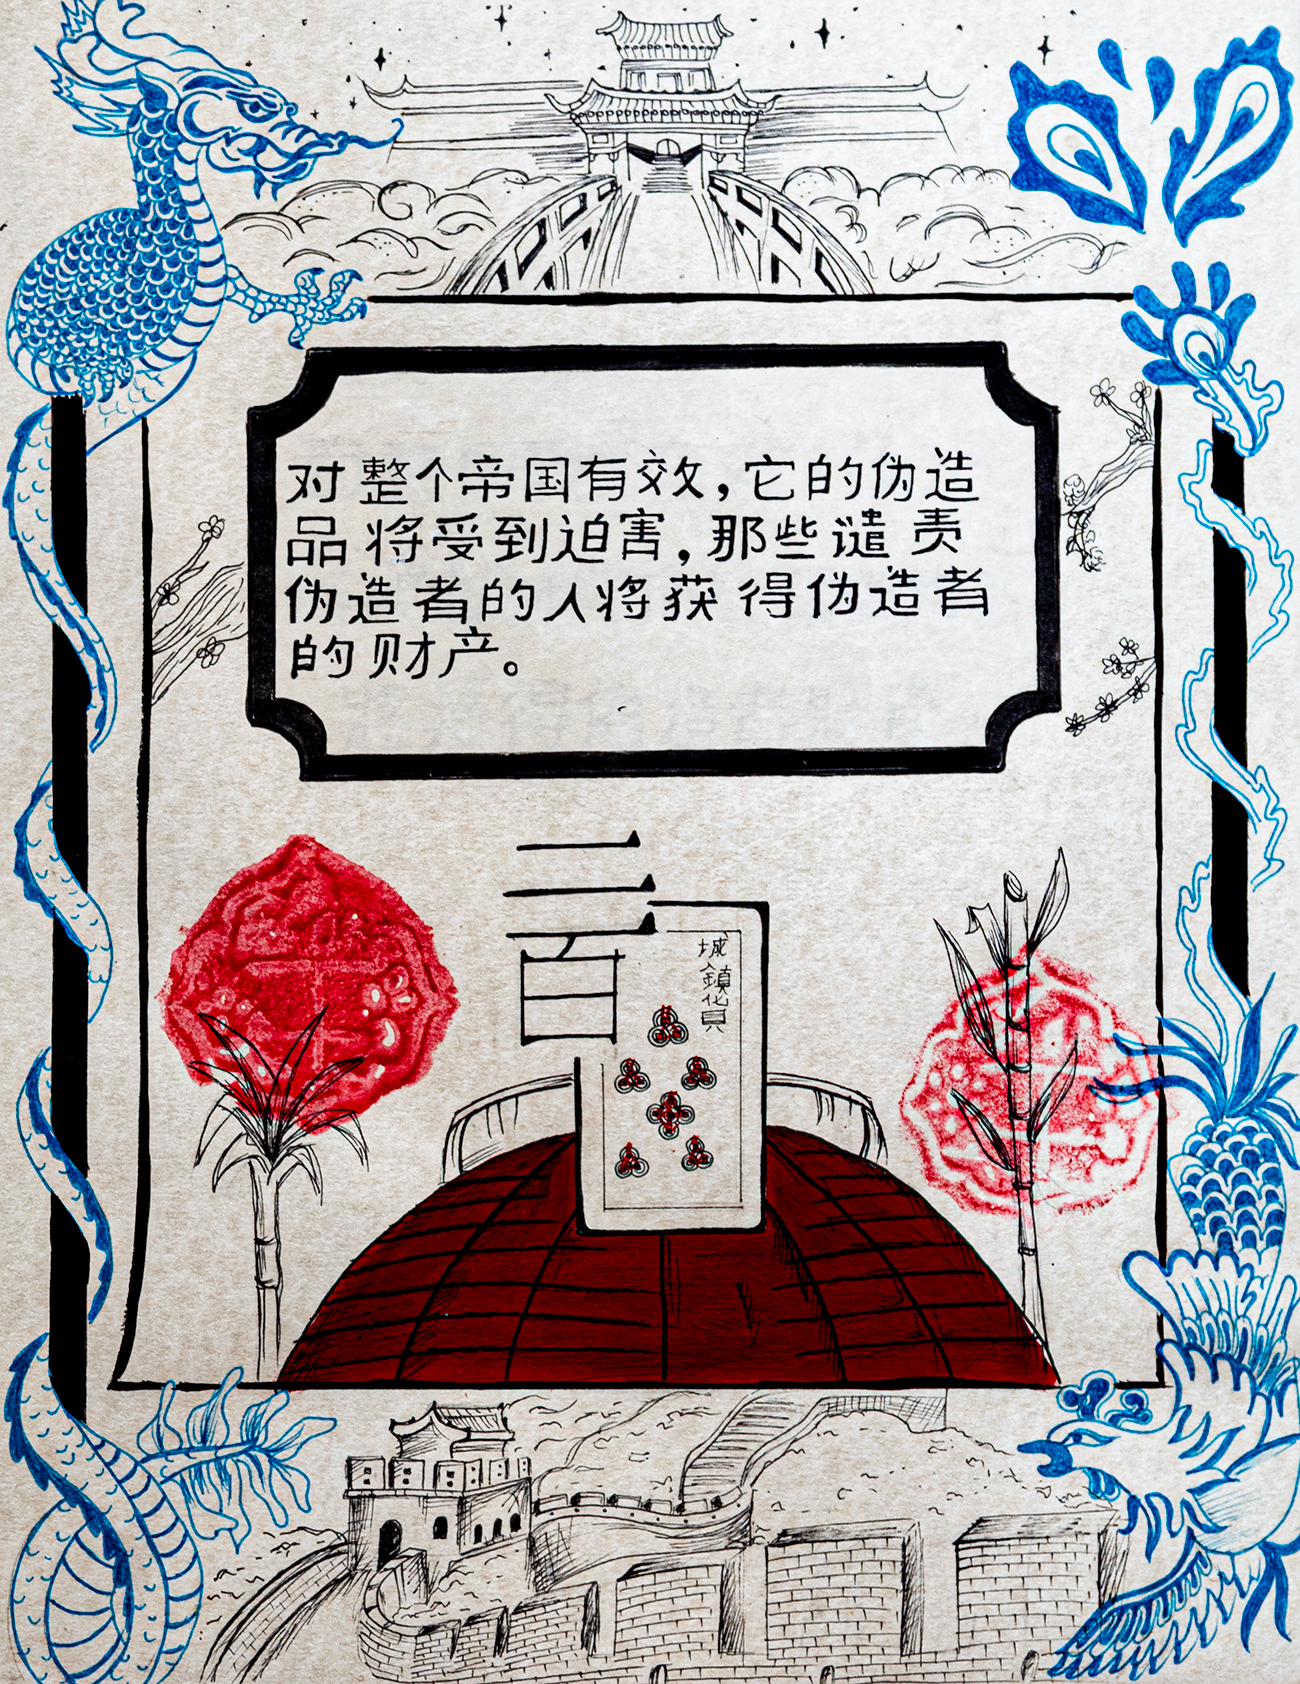 对整个帝国有效，它的伪造
品将受到迫害，那些谴责
伪造者的人将获得伪造者
的财产。
二百
城鎮化貝